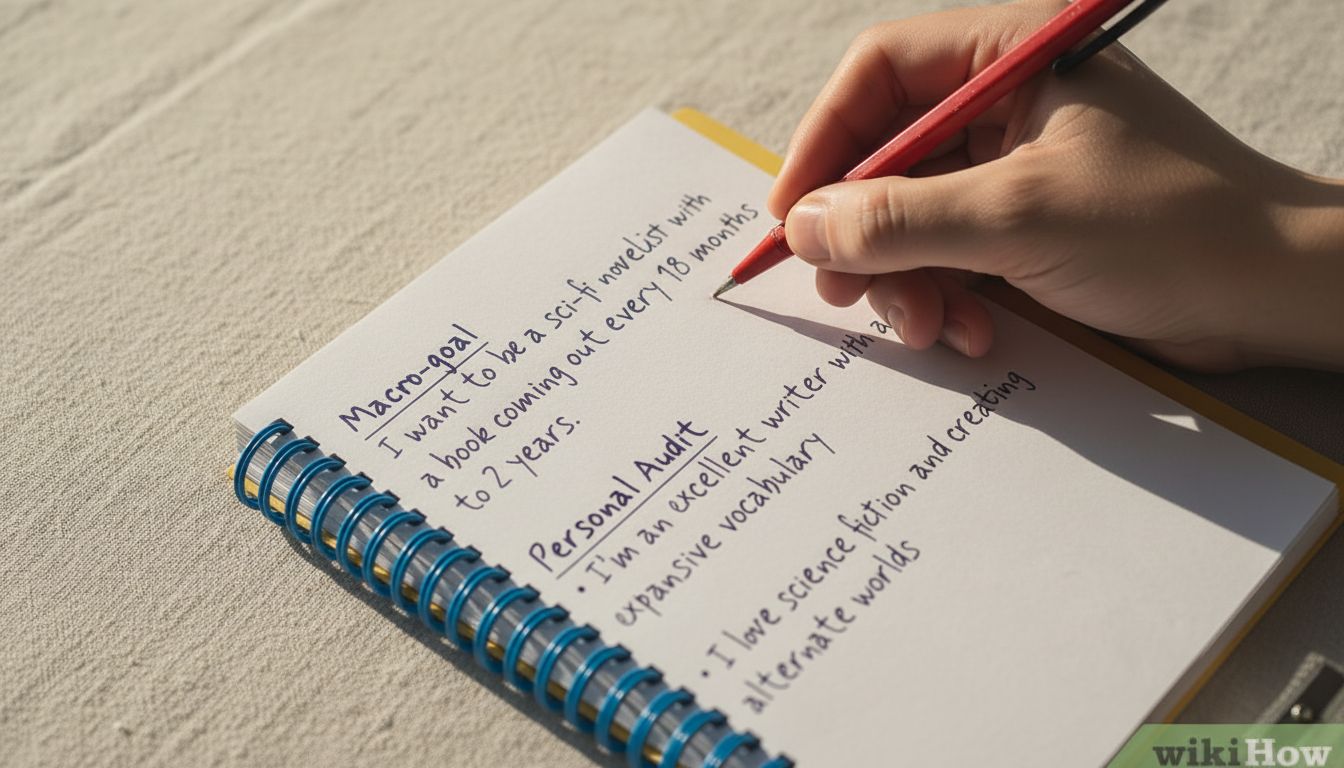 Macro-goal
I want to be a sci-fi novelist with
a book coming out every 18 months
to 2 years.
Personal Audit
• I'm an excellent writer with a
expansive vocabulary
• I love science fiction and creating
alternate worlds
wikiHow